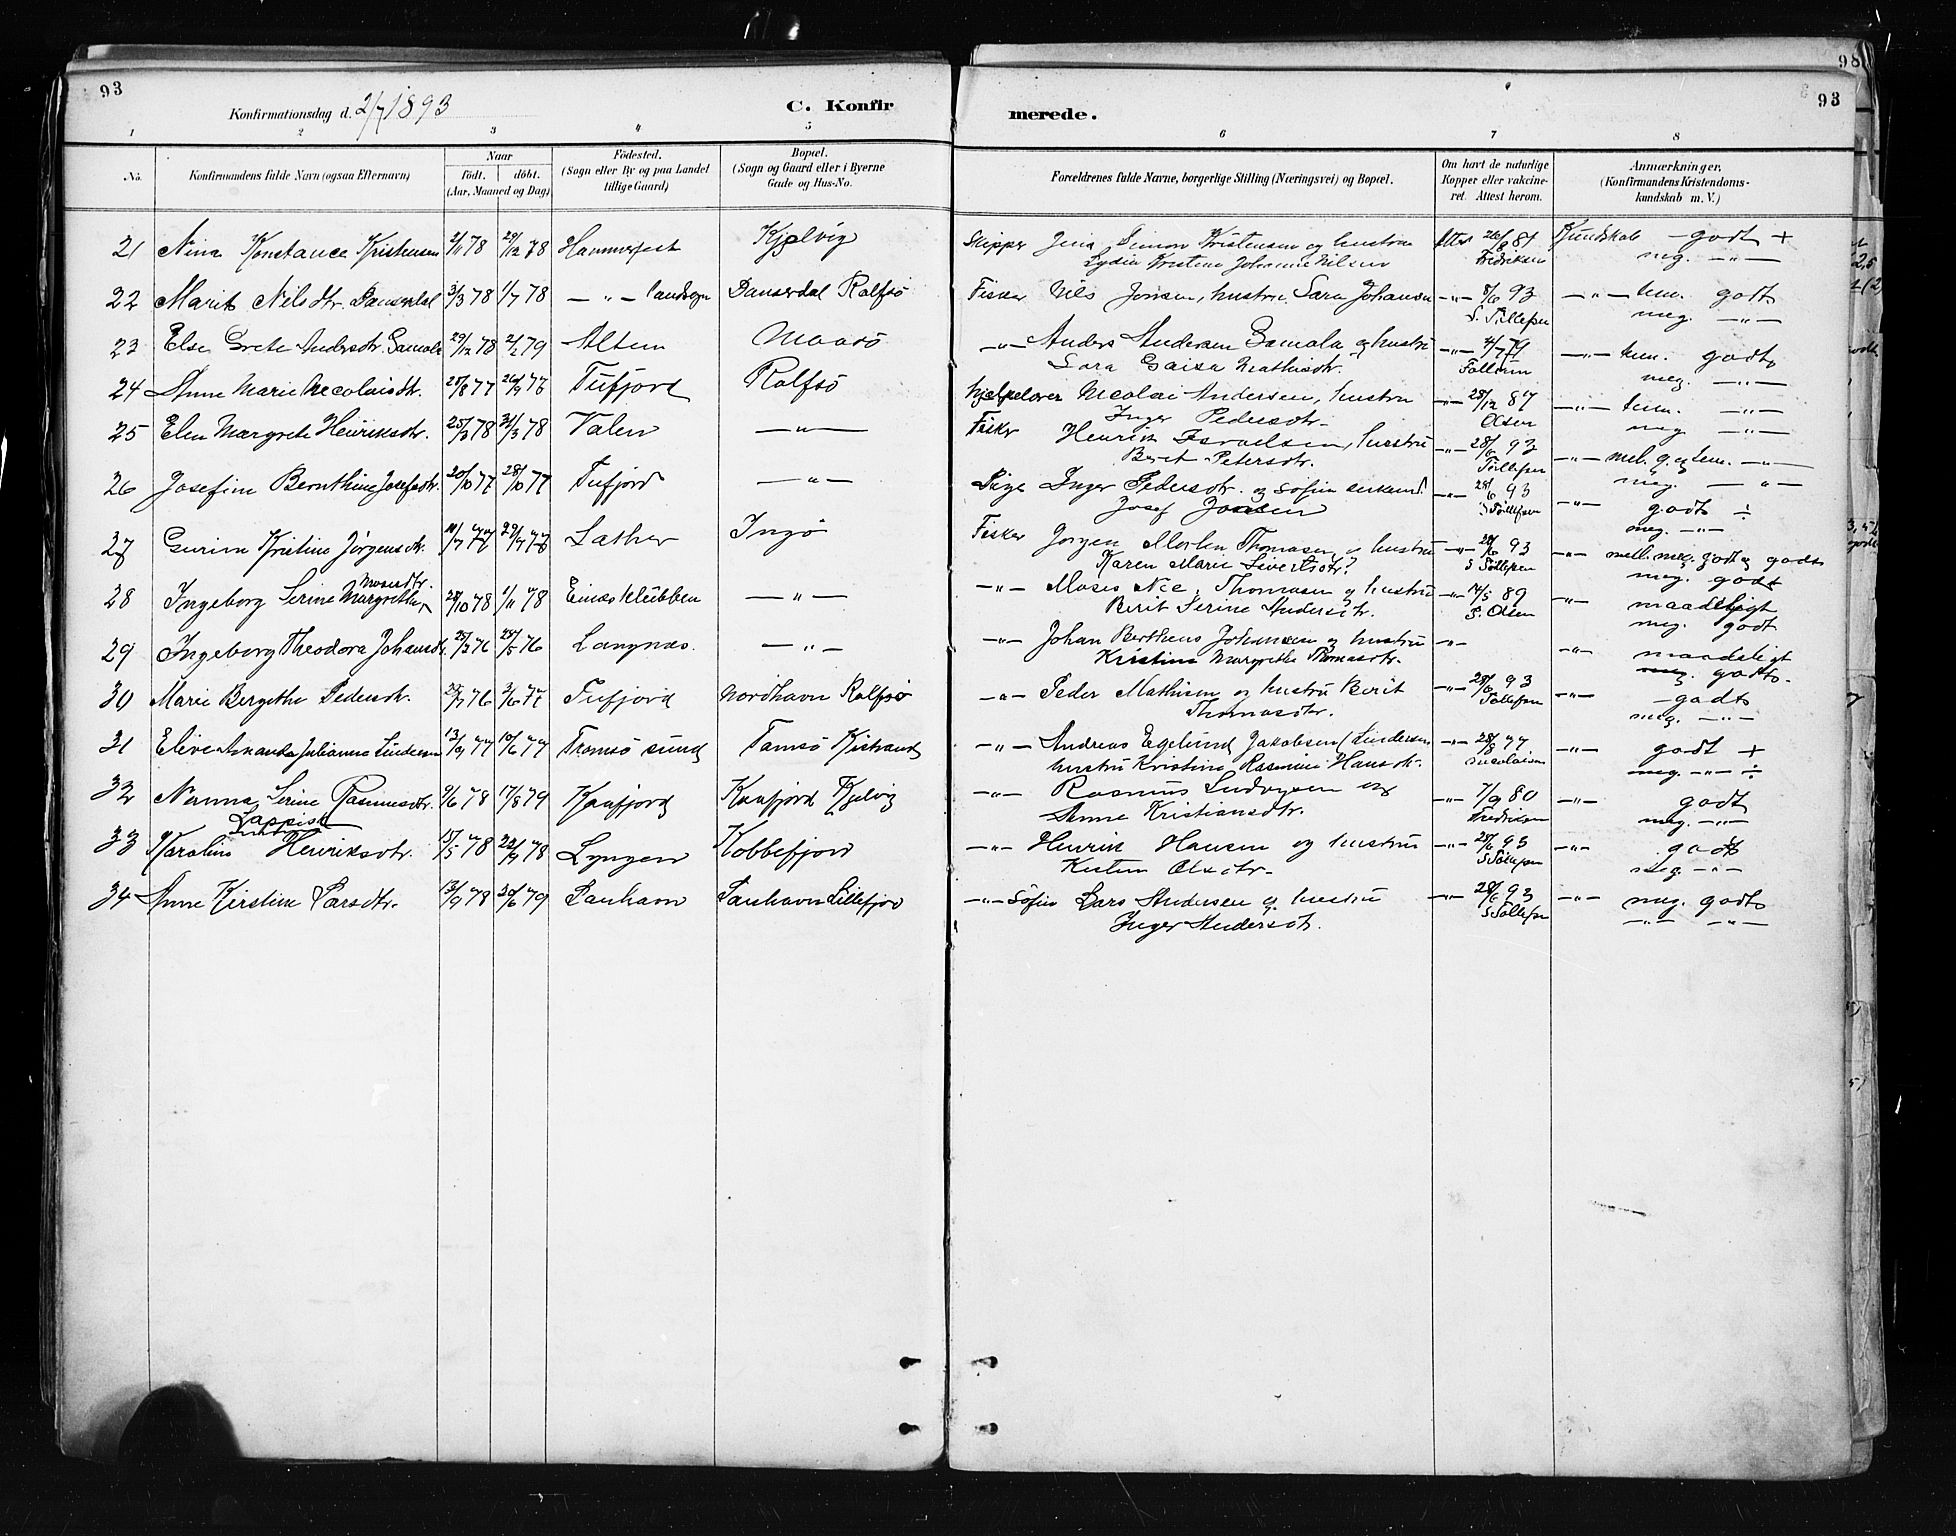 93
Konfirmationsdag d. 2/7 1893
C. Konfir
merede.
98
93
1 2 3 4 5 6 7 8
No.
Konfirmandens fulde Navn (ogsaa Efternavn)
Naar
födt. döbt.
(Aar, Maaned og Dag)
Födested.
(Sogn eller By og paa Landet
tillige Gaard)
Bopæl.
(Sogn og Gaard eller i Byerne
Gade og Hus-No.
Forældrenes fulde Navne, borgerlige Stilling (Næringsvei) og Bopæl.
Om havt de naturlige
Kopper eller vakcine-
ret. Attest herom.
Anmærkninger.
(Konfirmandens Kristendoms-
kundskab m. V.)
21 Nina Konstance Kristensen 2/11 78 29/12 78 Hammerfest Kjelvig Skipper Jens Simon Kristensen og hustru Attest 26/8 81 Kundskab godt +
Lydia Kristine Johanne Nilsen Fredriksen meg. —"—
22 Marit Nilsdtr. Danserdal 31/3 78 1/7 78 —"— landsogn Danserdal Rolfsö Fisker Nils Jonsen, hustru Sara Johansen —"— 8/6 93 —"— tem. godt
S. Tillefsen meg. —"—
23 Else Grete Andersdtr. Samola 29/12 78 2/2 79 Alten Maasö —"— Anders Andersen Samola og hustru —"— 4/7 79 —"— tem. godt
Sara Gaisa Mathisdtr. meg. —"—
24 Anne Marie Nicolaisdtr. Tufjord Rolfsö hjelpelærer Nicolai Andersen, hustru —"— 28/12 87 —"— tem. —"—
Inger Pedersdtr. Olsen meg —"—
25 Elen Margrete Henriksdtr. 25/3 78 31/3 78 Valen —"— Fisker Henrik Israelsen, hustru —"— 28/6 93 —"— mel. g. og tem. —"—
Berit Petersdtr. Tillefsen meg. —"—
26 Josefine Bernthine Josefsdtr. 20/10 77 28/10 77 Tufjord —"— Pige Inger Pedersdtr. og Söfin —"— 28/6 93 —"— godt ÷
Josef Jonsen S Tillefsen meg. —"—
27 Gurine Kristine Jörgensdtr. Lather Ingö Fisker Jörgen Morten Thomasen og hustru —"— 28/6 93 —"— mell. meg. godt og godt
Karen Marie Sivertsdtr. S Tillefsen meg. godt
28 Ingeborg Serine Margrethe Mosesdtr. 28/10 78 1/11 78 Einæsklubben —"— —"— Moses Nic. Thomasen og hustru —"— 14/5 89 —"— maadeligt
Berit Serine Andersdtr. S. Olsen meg. godt
29 Ingeborg Theodora Johansdtr. 76 76 Langnæs —"— —"— Johan Berthens Johansen og hustru —"— —"— maadeligt
Kirstine Margrethe Thomasdtr. meg. godt
30 Marie Bergithe Pedersdtr. 76 3/6 77 Tufjord Nordhavn Rolfsö —"— Peder Mathisen og hustru Berit —"— 28/6 93 —"— godt
Thomasdtr. Tillefsen meg. —"—
31 Elive Amanda Julianna Lindersen 77 77 Tromsö sund Tamsö Kistrand —"— Andreas Egelund Jakobsen (Lindersen —"— 28/8 77 —"— godt +
hustru Kristine Rasmine Hansdtr. Nicolaisen meg. —"— ÷
32 Nanna Serine Rasmusdtr. 9/6 78 17/8 79 Kaafjord Kaafjord Kjelvig —"— Rasmus Ludvigsen og —"— 7/9 80 —"— godt
Anne Kristiansdtr. Fredriksen meg. —"—
Lappisk
33 Karoline Henriksdtr. 18/5 78 78 Lyngen Kobbefjord —"— Henrik Hansen og hustru —"— 28/6 93 —"— godt
Kirsten Olsdtr. S Tillefsen meg. —"—
34 Anne Kirstine Larsdtr. 13/9 78 30/6 79 Lanhavn Lillefjord —"— Söfin Lars Andersen og hustru —"— 28/6 93 —"— meg. godt
Inger Andersdtr. S Tillefsen —"— —"—